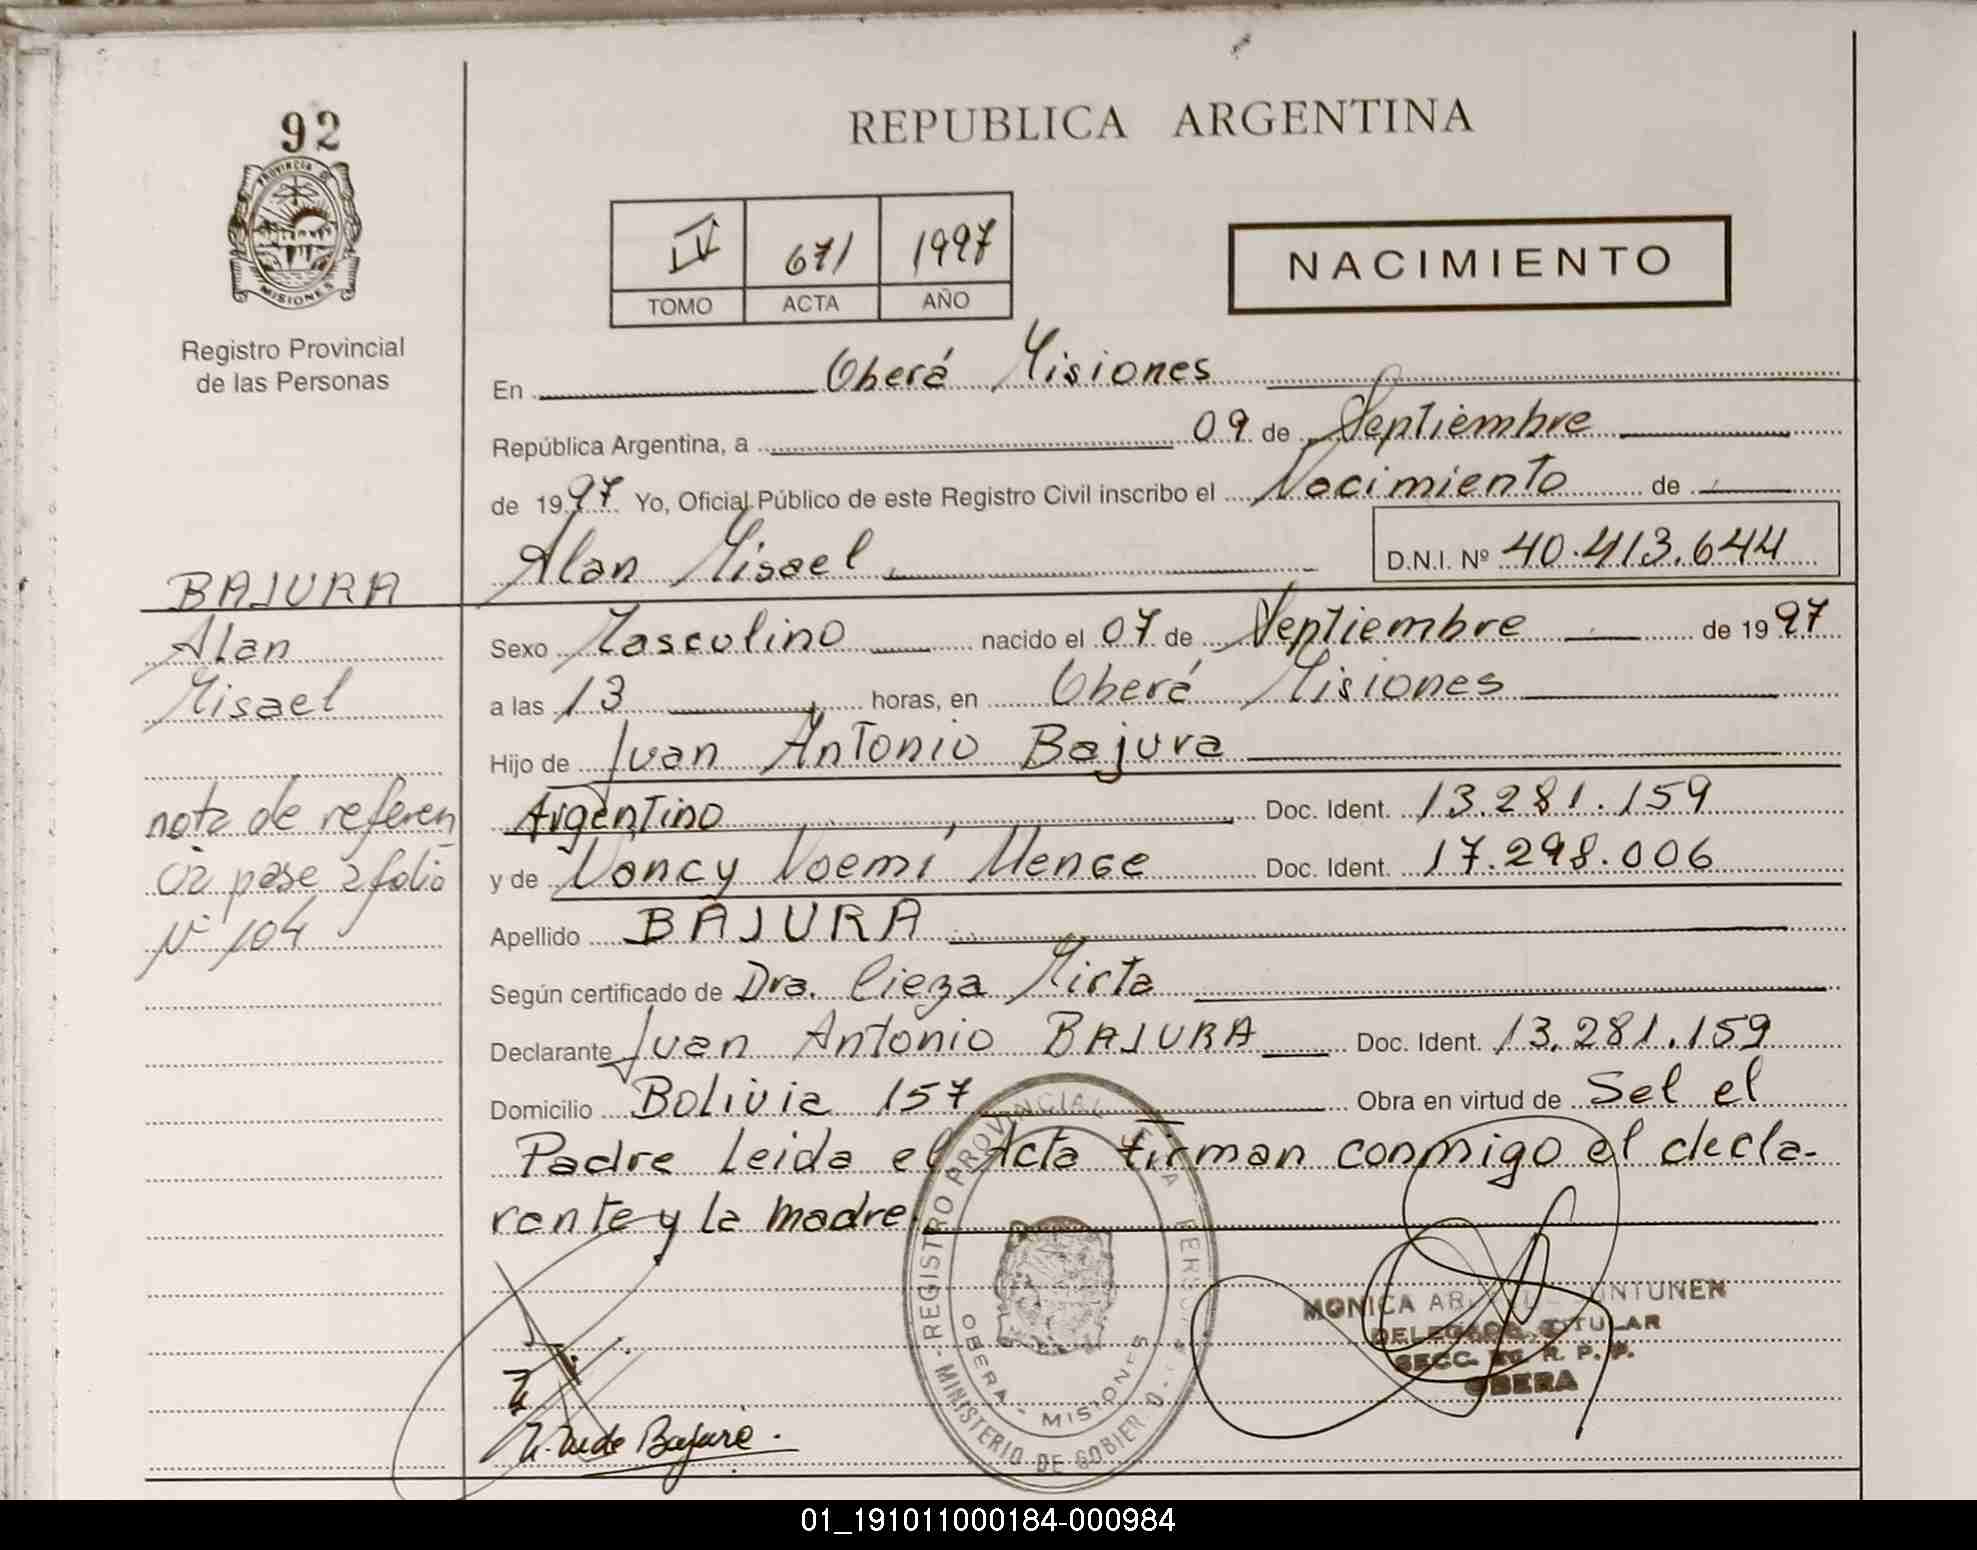 92
PROVINCIA DE
MISIONES
Registro Provincial
de las Personas
REPUBLICA ARGENTINA
IV 671 1997
TOMO ACTA AÑO
NACIMIENTO
En Oberá Misiones
República Argentina, a 09 de Septiembre
de 1997 Yo, Oficial Público de este Registro Civil inscribo el Nacimiento de
Alan Misael D.N.I. Nº 40.413.644
BAJURA
Alan
Misael
nota de referen
cia pase a folio
Nº 104
Sexo Masculino nacido el 07 de Septiembre de 1997
a las 13 horas, en Oberá Misiones
Hijo de Juan Antonio Bajura
Argentino Doc. Ident. 13.281.159
y de Nancy Noemí Menge Doc. Ident. 17.298.006
Apellido BAJURA
Según certificado de Dra. Cieza Mirta
Declarante Juan Antonio BAJURA Doc. Ident. 13.281.159
Domicilio Bolivia 157 Obra en virtud de Sel el
Padre Leida el Acta firman conmigo el decla-
rante y la madre.
REGISTRO PROVINCIAL DE LA PERSONAS
MINISTERIO DE GOBIERNO
OBERA - MISIONES
MONICA UNTUNEN
DELEGADA TITULAR
SECC. R. P. P.
OBERA
de Bajura.
01_191011000184-000984